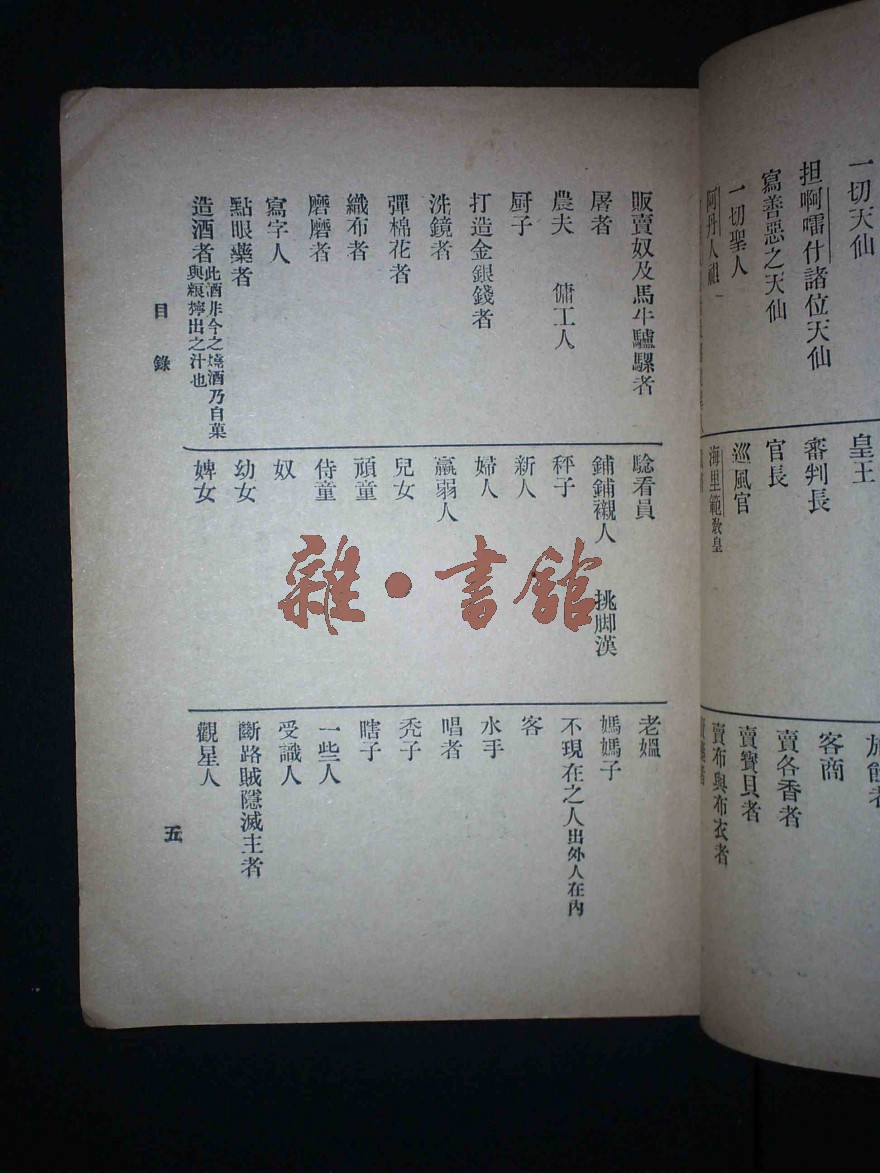 一切天仙
担啊嚅什諸位天仙
寫善惡之天仙
一切聖人
阿丹人祖
皇王
審判長
官長
巡風官
海里範教皇
客商
賣各香者
賣寶貝者
賣布與布衣者
販賣奴及馬牛驢騾者
屠者
農夫 傭工人
厨子
打造金銀錢者
洗鏡者
彈棉花者
織布者
磨磨者
寫字人
點眼藥者
造酒者此酒非今之燒酒乃自菓與糗擰出之汁也
驗看員
鋪鋪襯人 挑脚漢
秤子
新人
婦人
羸弱人
兒女
頑童
侍童
奴
幼女
婢女
老媼
媽媽子
不現在之人出外人在內
客
水手
唱者
禿子
瞎子
一些人
受識人
斷路賊隱滅主者
觀星人
目錄
五
雜·書館